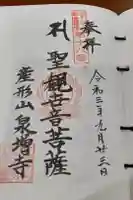 奉拝
令和三年九月廿三日
聖観世音菩薩
産形山 泉増寺